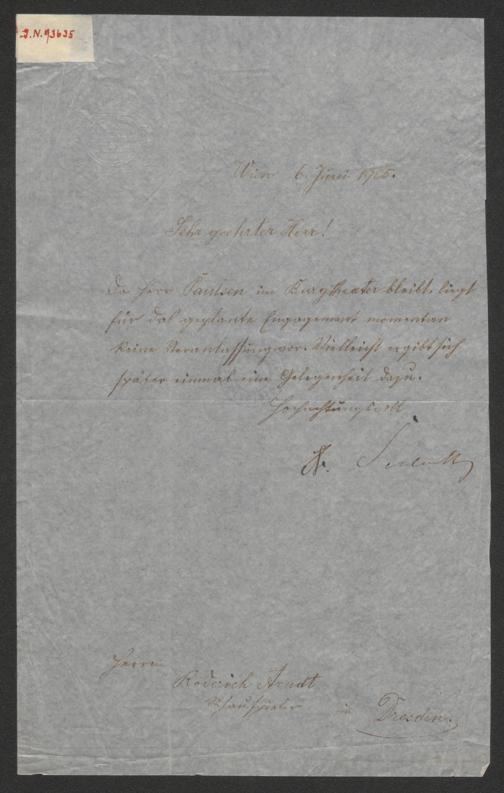 J.N. 93635
Wien 6. Juni 1905.
Sehr geehrter Herr!
Da Herr Paulsen im Burgtheater bleibt, liegt
für das geplante Engagement momentan
keine Veranlassung vor. Vielleicht ergibt sich
später einmal eine Gelegenheit dazu.
Hochachtungsvoll
Herrn
Roderich Arndt
Schauspieler in Dresden.